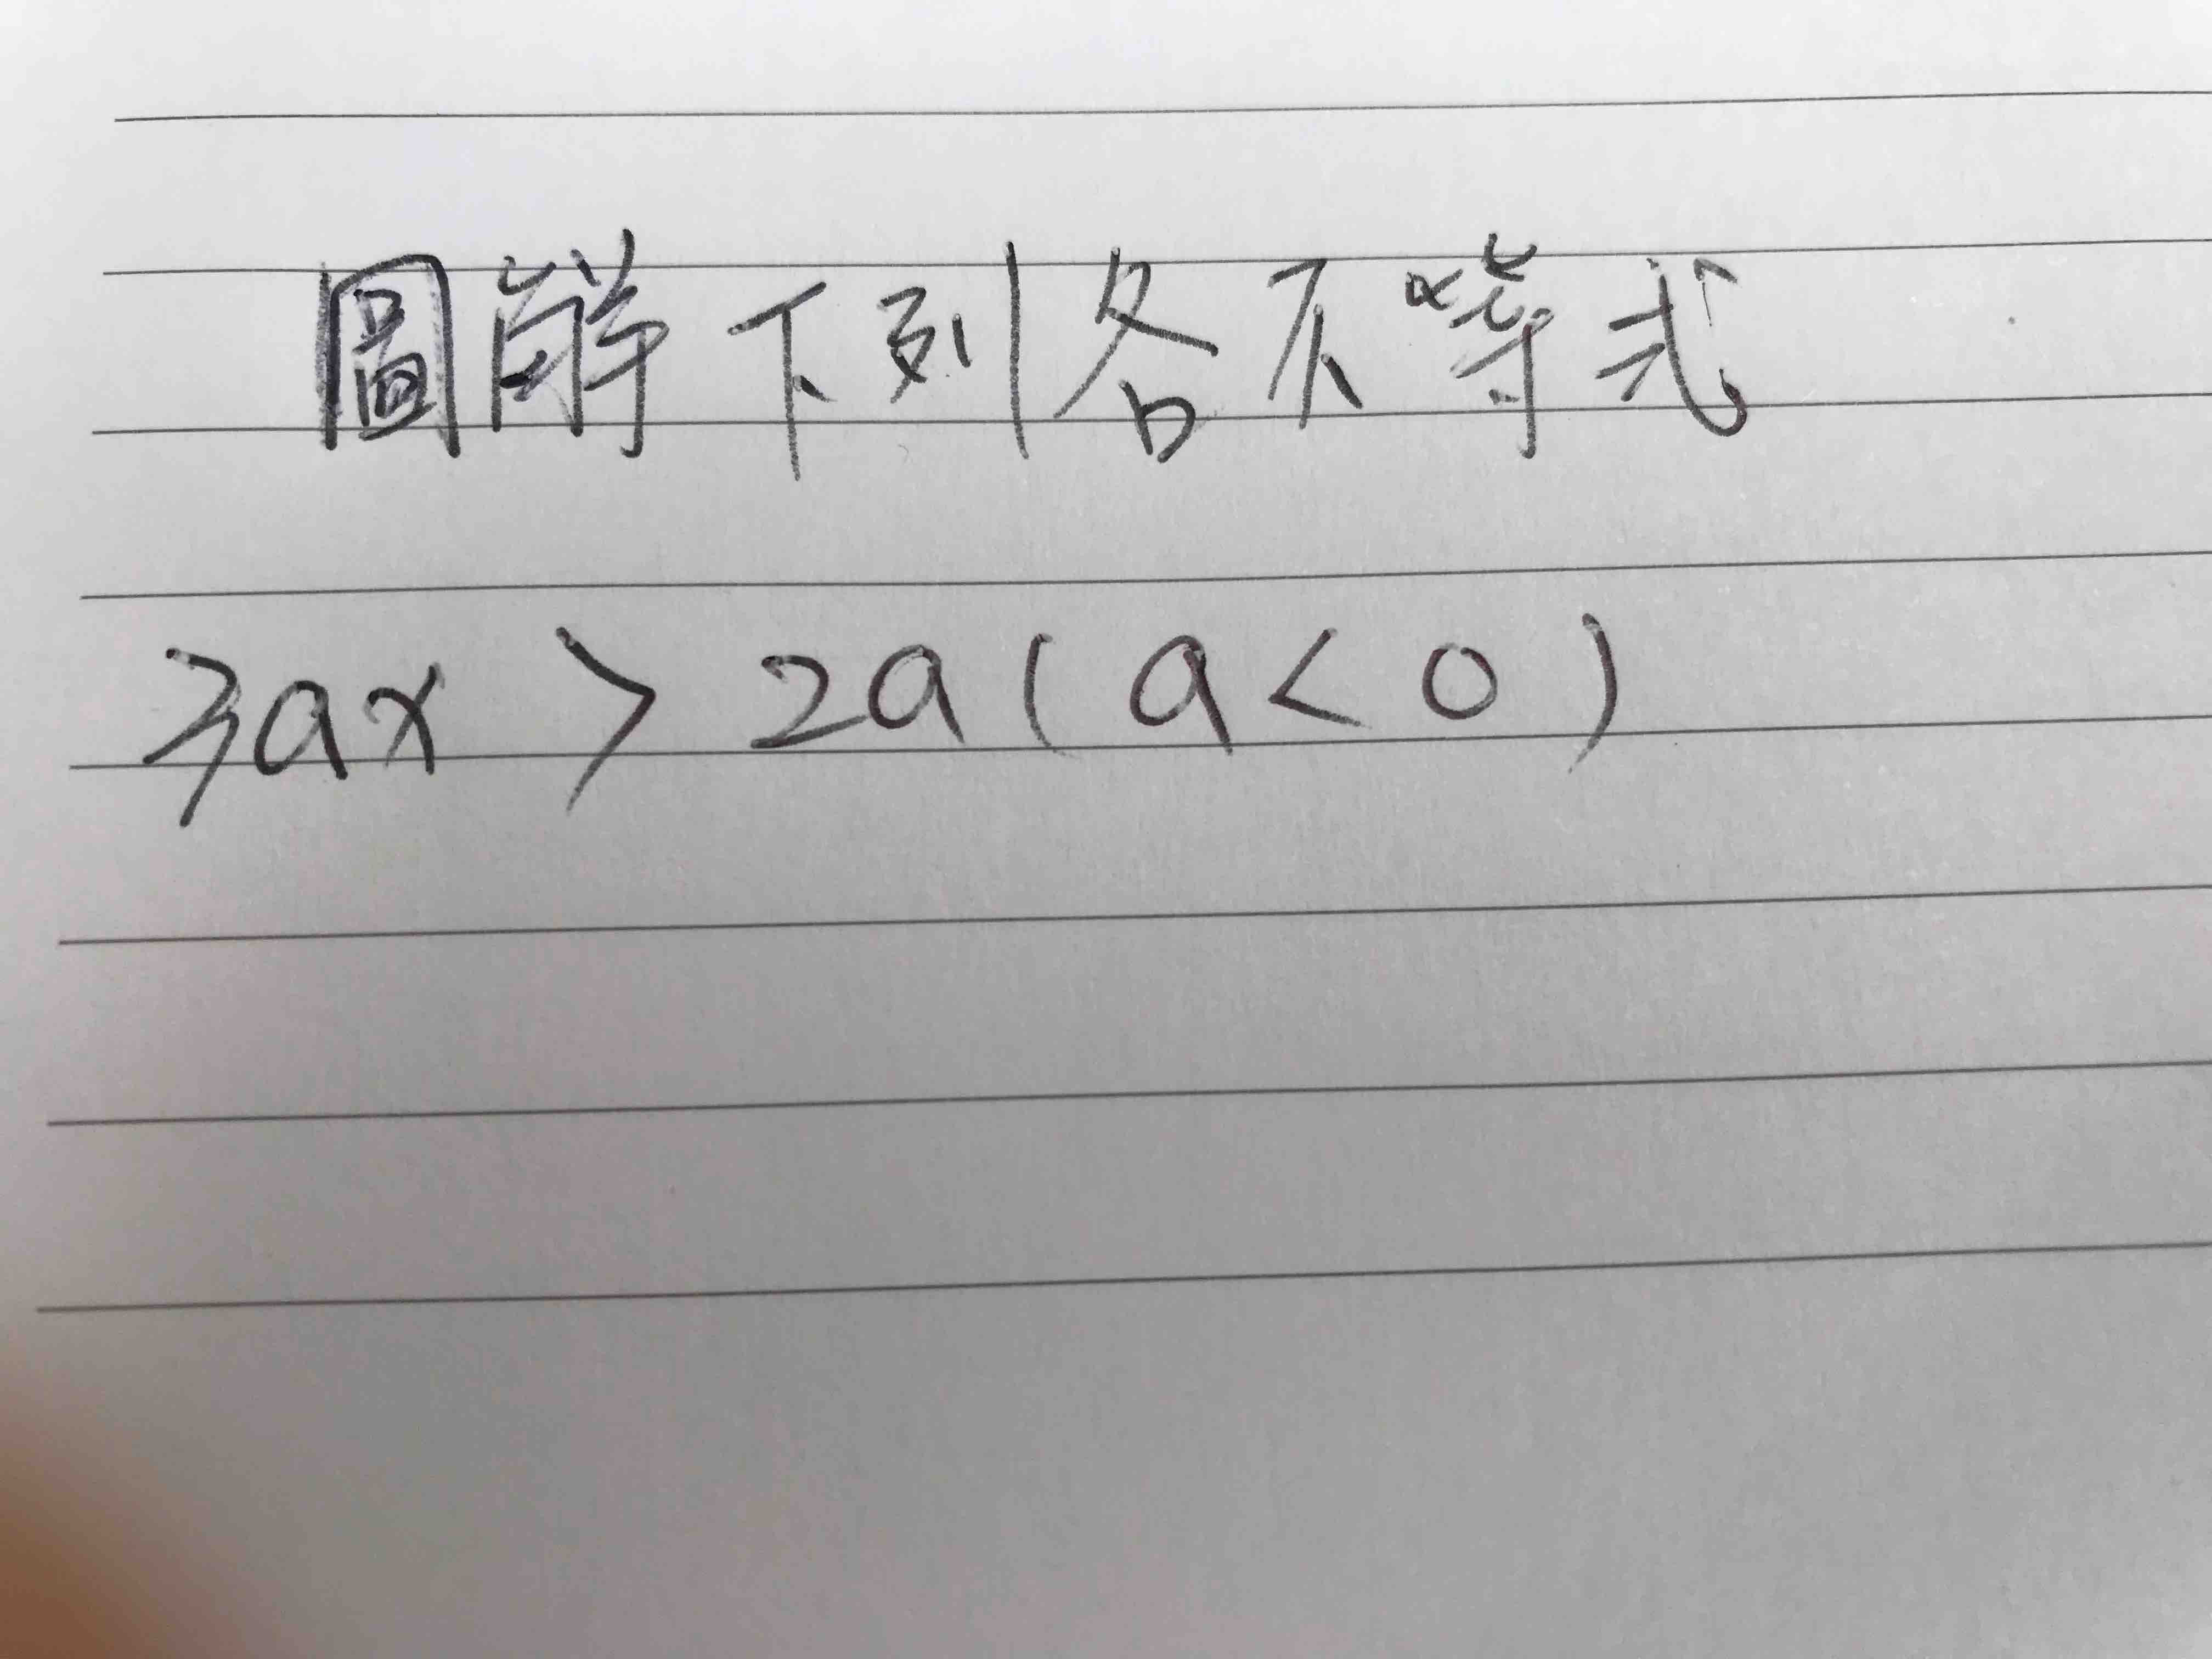 圖解下列各不等式
3ax > 2a ( a < 0 )